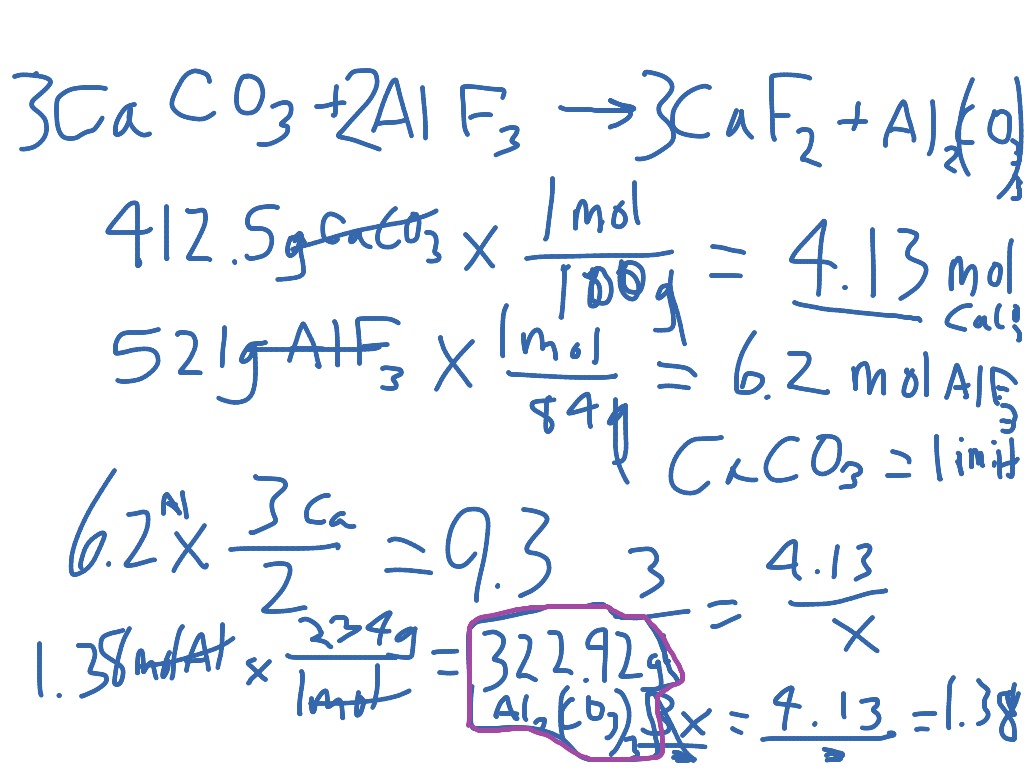 3CaCO3 + 2AlF3 → 3CaF2 + Al2(CO3)3
412.5g CaCO3 x 1 mol / 100g = 4.13 mol
521g AlF3 x 1 mol / 84g = 6.2 mol AlF3
CaCO3 = limit
6.2 Al x 3 Ca / 2 = 9.3
3 / x = 4.13 / x
1.38 mol Al x 234g / 1 mol = 322.92g Al2(CO3)3
3x / 3 = 4.13 / 3 = 1.38